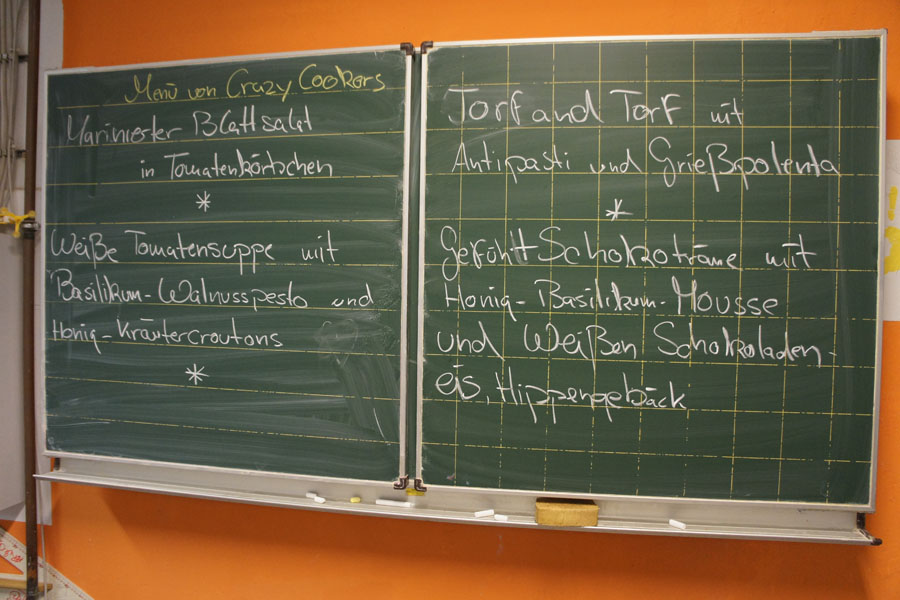 Menü von Crazy Cookers
Marinierter Blattsalat
in Tomatenkörbchen
*
Weiße Tomatensuppe mit
Basilikum-Walnusspesto und
Honig-Kräutercroutons
*
Torf and Torf mit
Antipasti und Grießpolenta
*
Schokoträne mit
Honig-Basilikum-Mousse
und Weißen Schokoladen-
eis, Hippengebäck